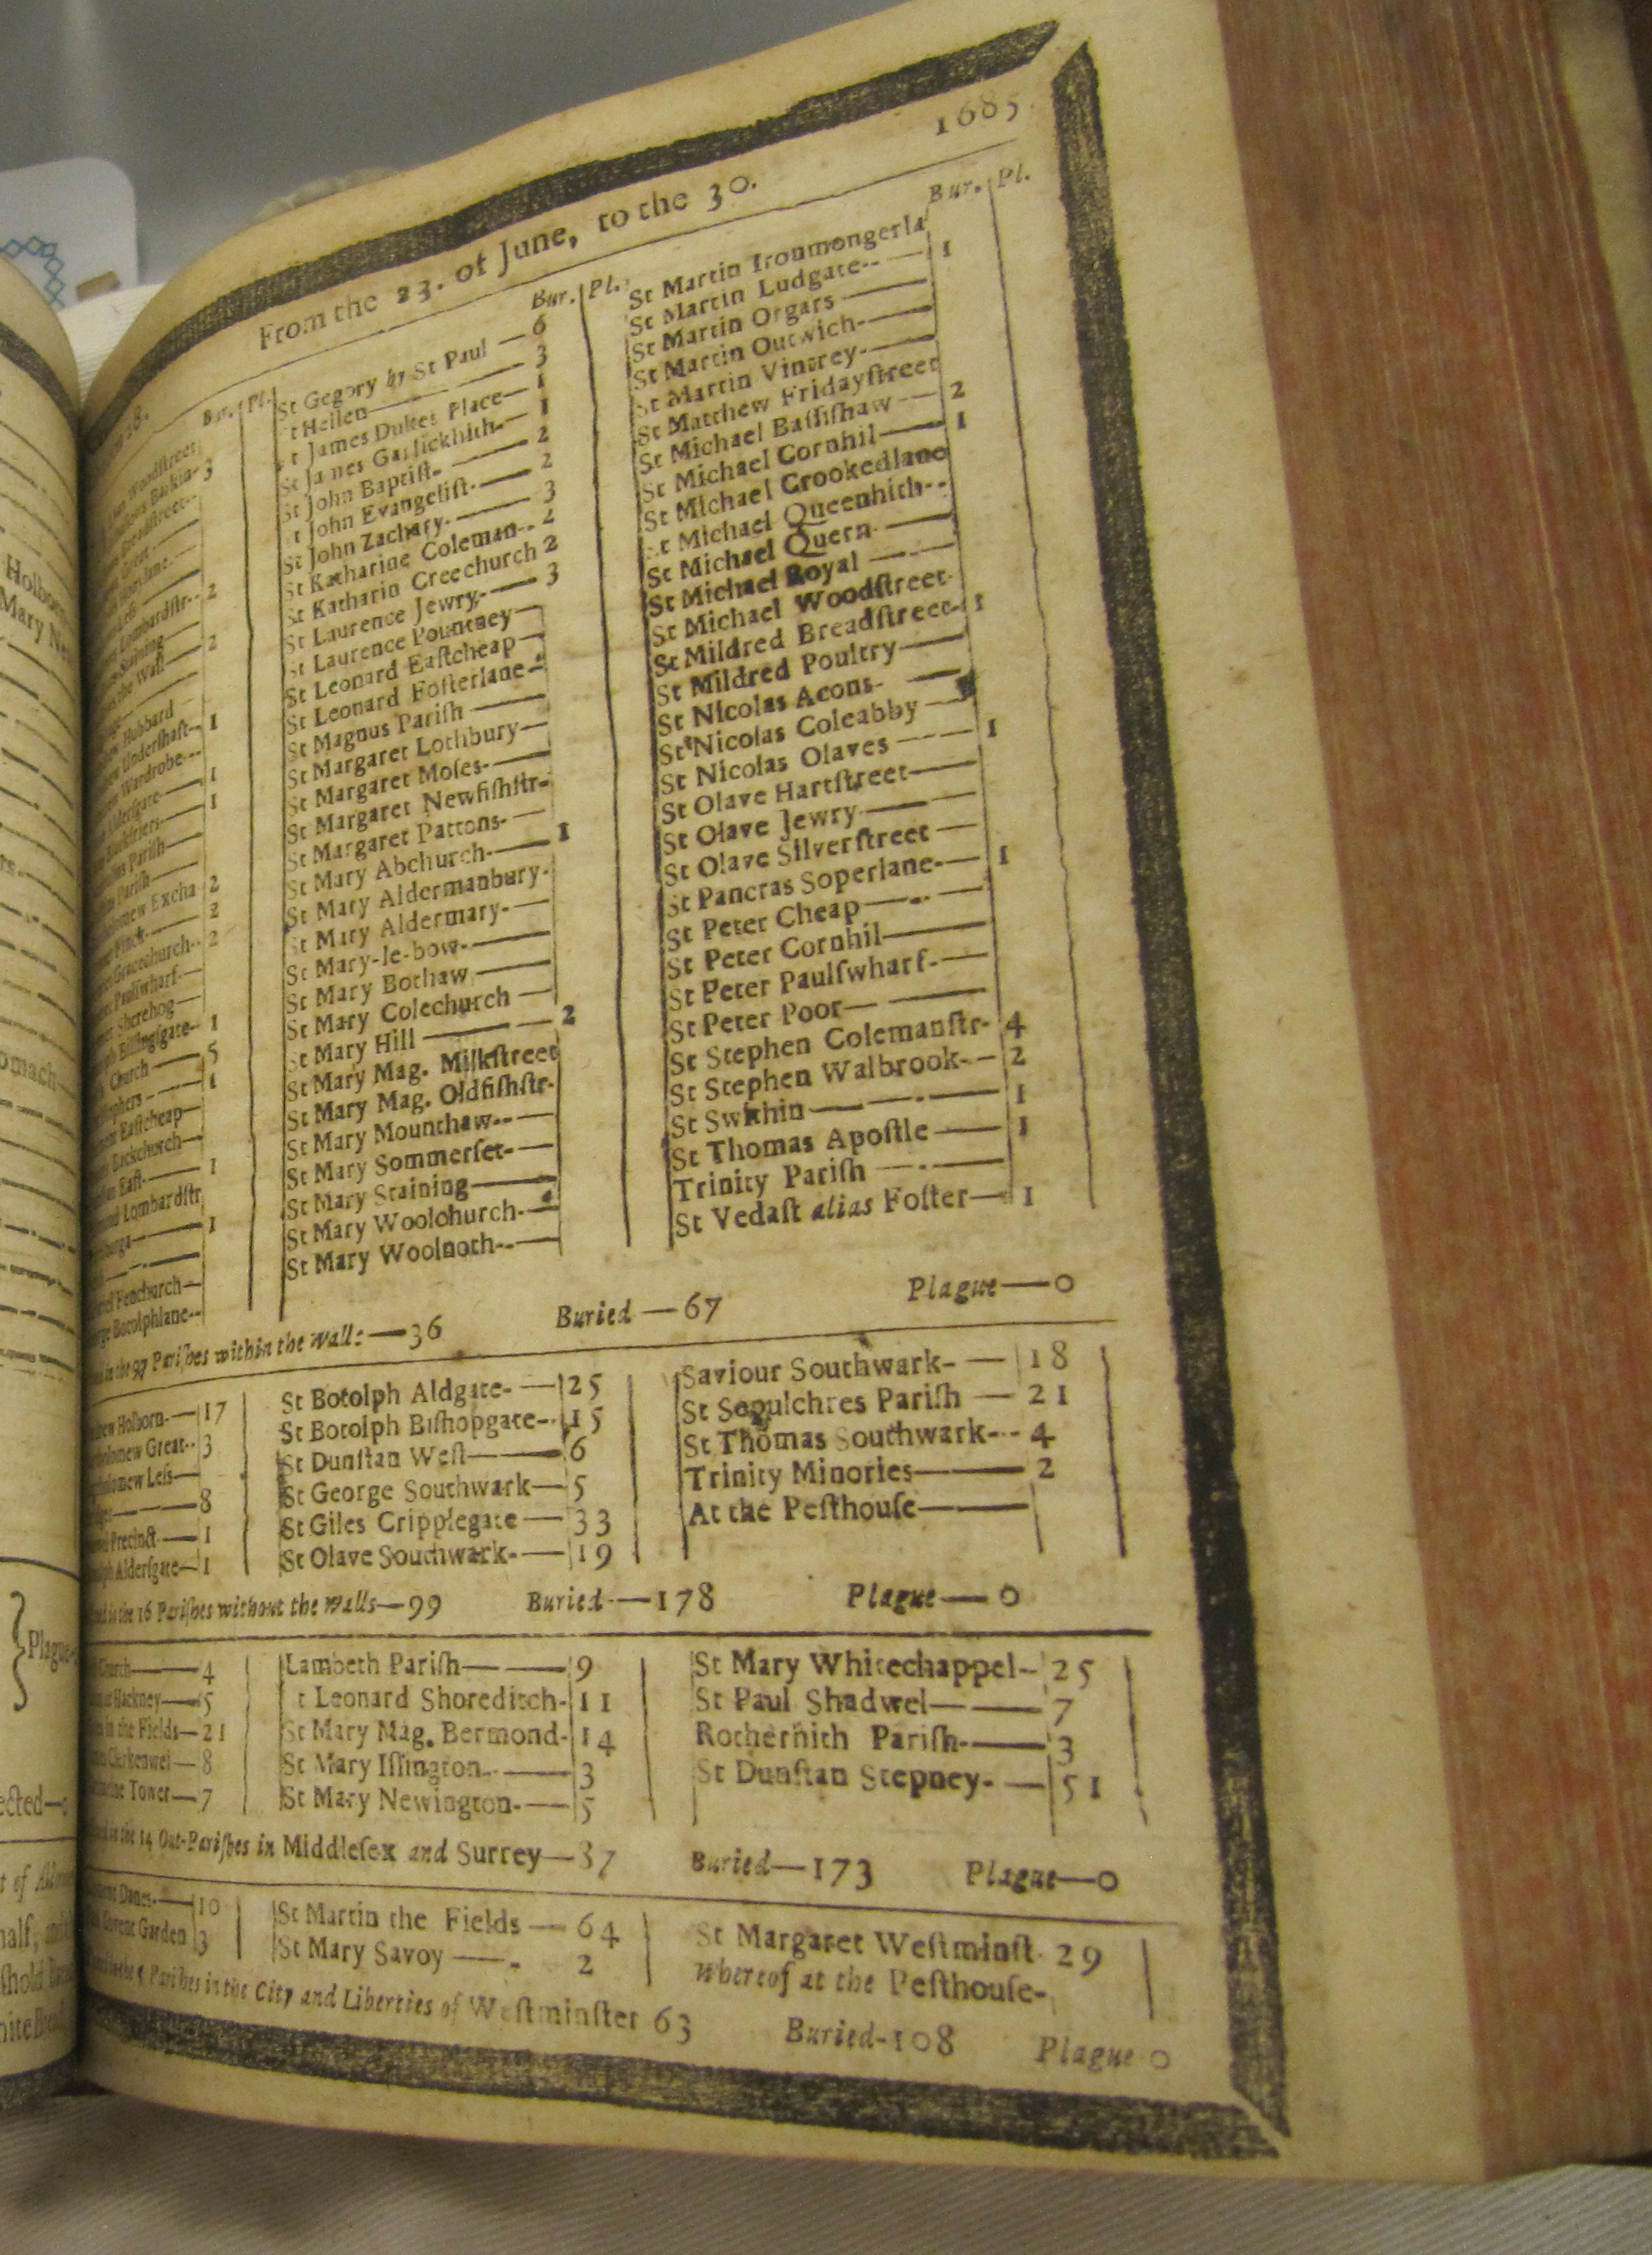 1685
From the 23. of June, to the 30.
Bur. Pl.
Woodstreet
Barkin- 3
Breadstreet--
Lombardstr-- 2
Staining
the Wall— 2
Hubbard
Undershaft-- 1
Wardrobe---
Aldersgate— 1
1
Parish
Parish
Excha 2
2
Gracechurch-- 2
Paulswharf-
Sherehog—
Billingsgate- 1
Church— 5
1
Eastcheap—
Backchurch—
East— 1
Lombardstr
1
Fenchurch—
Botolphlane--
Bur. Pl.
St Gegory by St Paul — 6
t Hellen— 3
t James Dukes Place— 1
St James Garlickhith- 1
St John Baptist- — 2
t John Evangelist-— 2
St John Zachary-— 3
St Katharine Coleman-- 2
St Katharin Creechurch 2
St Laurence Jewry-— 3
St Laurence Pountney—
St Leonard Eastcheap —
St Leonard Fosterlane-
St Magnus Parish —
St Margaret Lothbury—
St Margaret Moses-—
St Margaret Newfishstr-
St Margaret Pattons- —
St Mary Abchurch-— 1
St Mary Aldermanbury-
St Mary Aldermary- —
St Mary-le-bow-—
St Mary Bothaw —
St Mary Colechurch —
St Mary Hill — 2
St Mary Mag. Milkstreet
St Mary Mag. Oldfishstr-
St Mary Mounthaw--—
St Mary Sommerset-—
St Mary Staining—
St Mary Woolchurch-—
St Mary Woolnoth--—
Bur. Pl.
St Martin Ironmongerla
St Martin Ludgate--— 1
St Martin Orgars —
St Martin Outwich-—
St Martin Vintrey-—
St Matthew Fridaystreet
St Michael Bassishaw — 2
St Michael Cornhil— 1
St Michael Crookedlane
St Michael Queenhith--
St Michael Quern-—
St Michael Royal —
St Michael Woodstreet-
St Mildred Breadstreet- 1
St Mildred Poultry—
St Nicolas Acons- —
St Nicolas Coleabby —
St Nicolas Olaves — 1
St Olave Hartstreet—
St Olave Jewry—
St Olave Silverstreet —
St Pancras Soperlane-— 1
St Peter Cheap—
St Peter Cornhil—
St Peter Paulswharf-—
St Peter Poor— —
St Stephen Colemanstr- 4
St Stephen Walbrook-— 2
St Swithin— — 1
St Thomas Apostle — 1
Trinity Parish —
St Vedast alias Foster— 1
in the 97 Parishes within the walls—36 Buried —67 Plague—0
Holborn-—17
Great-- 3
Less—
—8
Precinct-— 1
Aldersgate— 1
St Botolph Aldgate-—25
St Botolph Bishopgate-- 15
St Dunstan West—6
St George Southwark—5
St Giles Cripplegate —33
St Olave Southwark-—19
Saviour Southwark-— 18
St Sepulchres Parish — 21
St Thomas Southwark-- 4
Trinity Minories— 2
At the Pesthouse—
in the 16 Parishes without the Walls—99 Buried-—178 Plague—0
Church—4
Hackney—5
in the Fields—21
Clerkenwel—8
Tower—7
Lambeth Parish— —9
t Leonard Shoreditch-11
St Mary Mag. Bermond-14
St Mary Islington-—3
St Mary Newington-—5
St Mary Whitechappel-- 25
St Paul Shadwel— 7
Rotherhith Parish-—3
St Dunstan Stepney-—51
in the 14 Out-Parishes in Middlesex and Surrey—87 Buried—173 Plague—0
Danes-—10
Covent Garden 3
St Martin the Fields — 64
St Mary Savoy — 2
St Margaret Westminst- 29
Whereof at the Pesthouse-
Parishes in the City and Liberties of Westminster 63 Buried-108 Plague 0